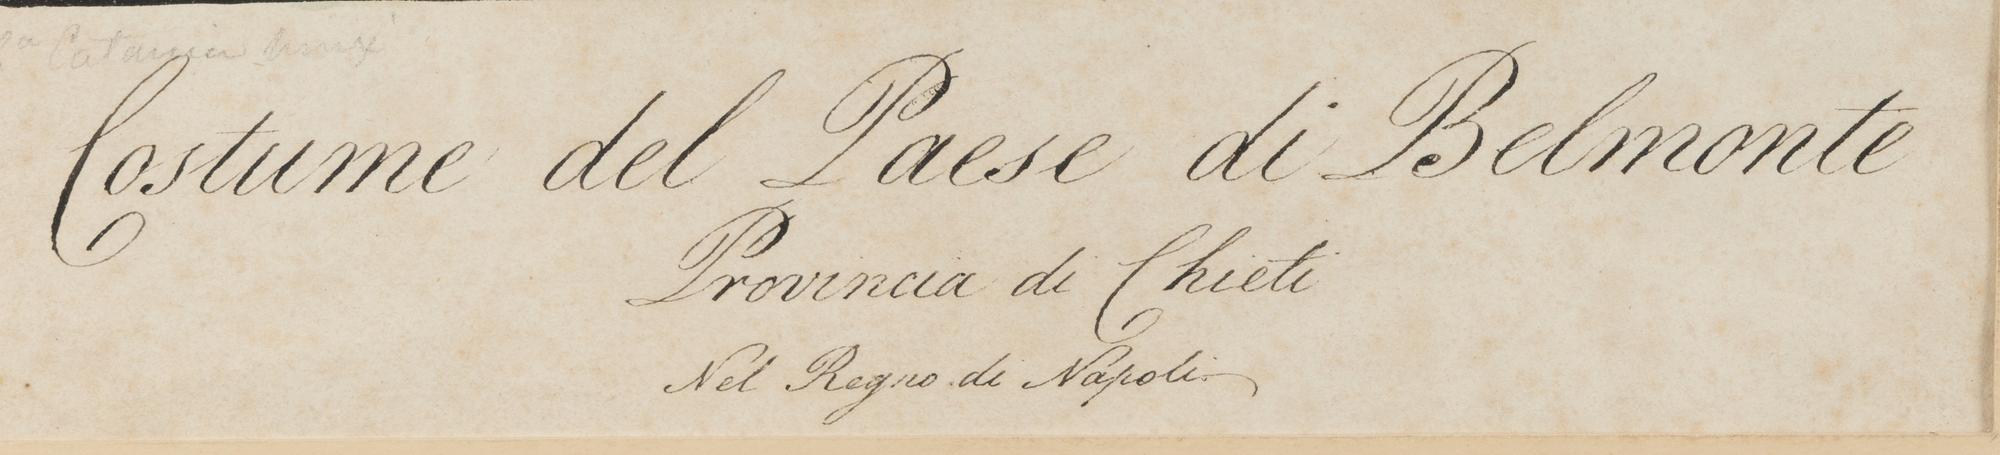 Costume del Paese di Belmonte
Provincia di Chieti
Nel Regno di Napoli